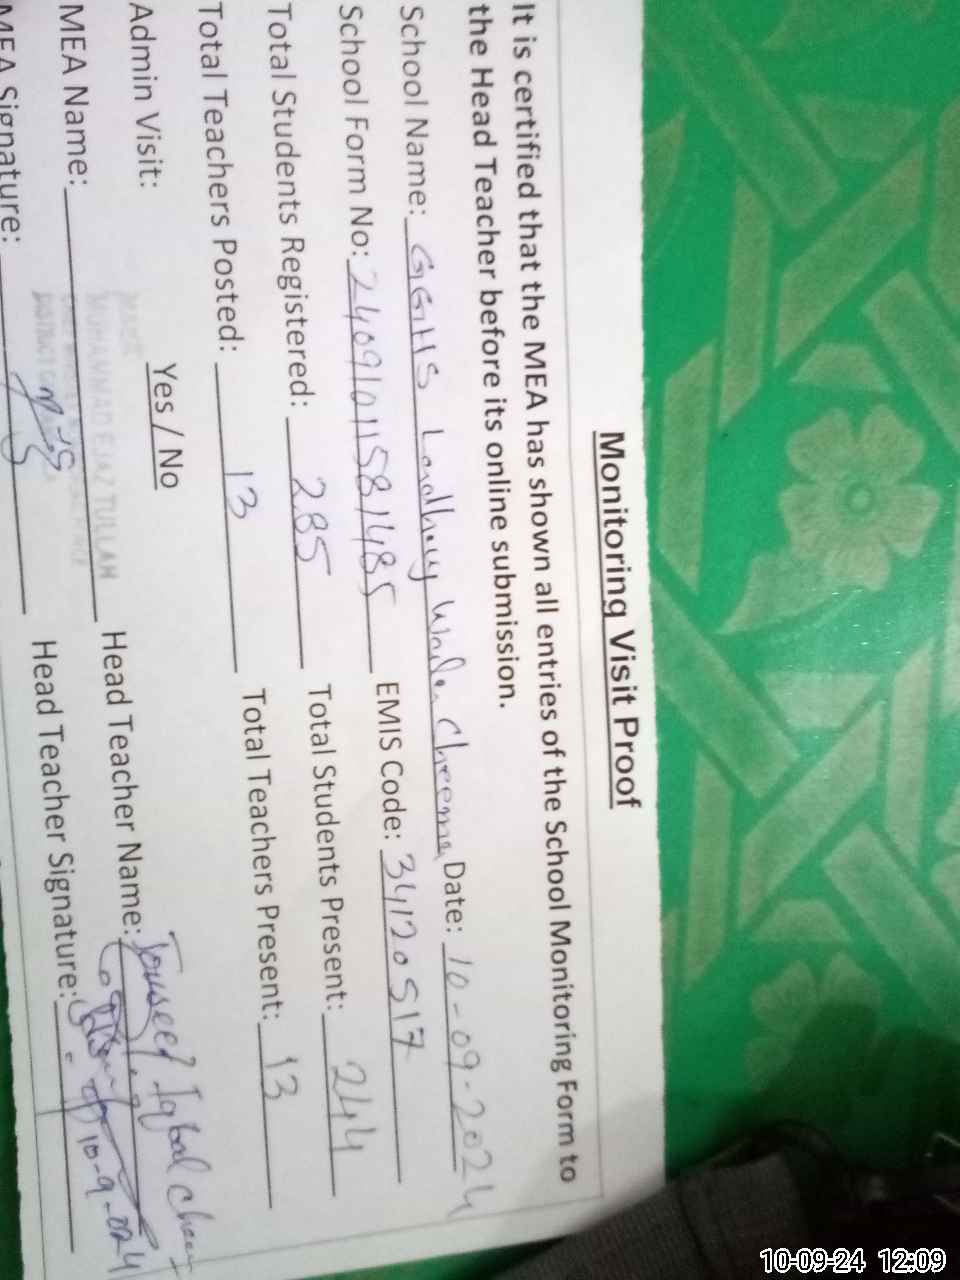 Monitoring Visit Proof
It is certified that the MEA has shown all entries of the School Monitoring Form to
the Head Teacher before its online submission.
School Name: GGHS Cheema Date: 10-09-2024
School Form No: 24091011581485 EMIS Code: 34120517
Total Students Registered: 285 Total Students Present: 244
Total Teachers Posted: 13 Total Teachers Present: 13
Admin Visit: Yes / No
MUHAMMAD EJAZ TULLAH
MEA Name: Head Teacher Name: Touseef Iqbal
MEA Signature: Head Teacher Signature:
10-9-024
10-09-24 12:09